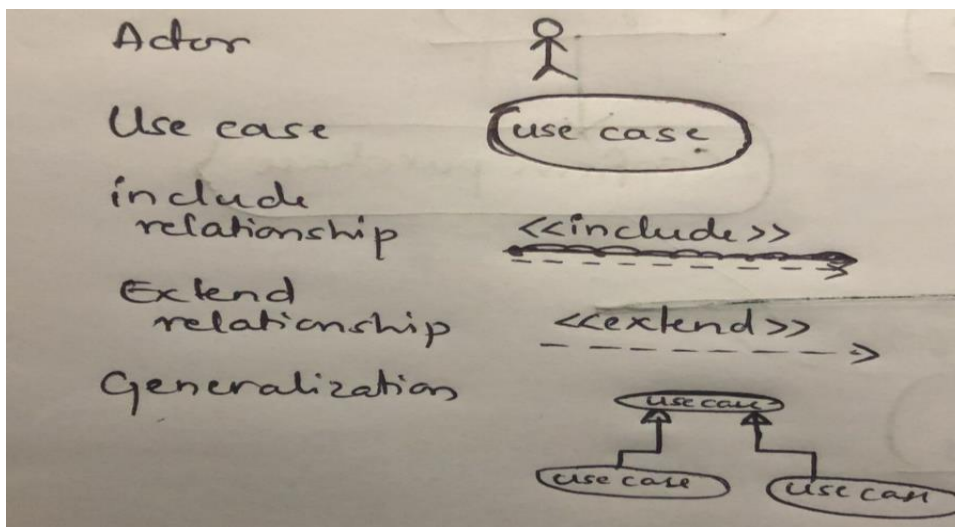 Actor
Use case
use case
include
relationship
<<include>>
Extend
relationship
<<extend>>
Generalization
use case
use case
use case